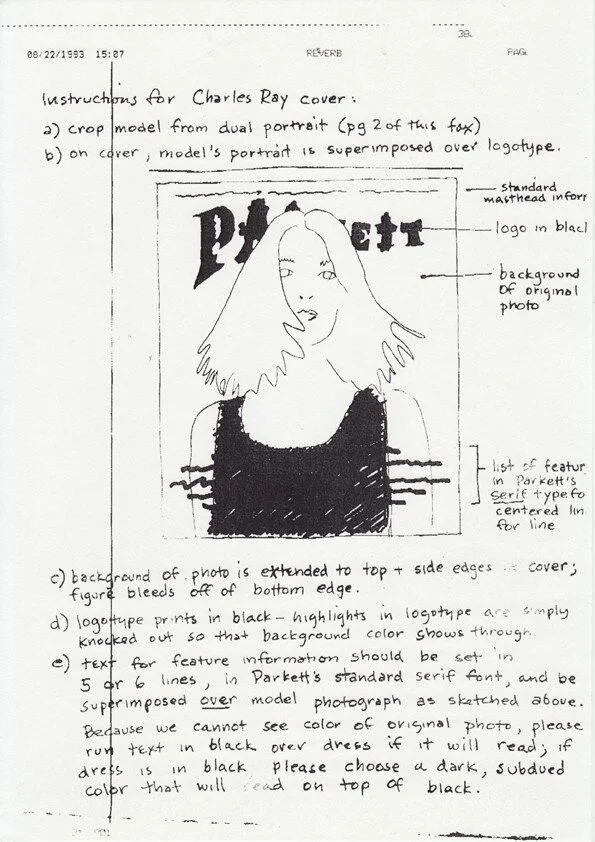 38.
08/22/1993 15:07 REVERB
Instructions for Charles Ray cover:
a) crop model from dual portrait (pg 2 of this fax)
b) on cover, model's portrait is superimposed over logotype.
standard
masthead inform
PA ETT
logo in blacl
background
of original
photo
list of featur
in Parkett's
serif type fo
centered lin
for line
c) background of photo is extended to top + side edges cover;
figure bleeds off of bottom edge.
d) logotype prints in black – highlights in logotype are simply
knocked out so that background color shows through
e) text for feature information should be set in
5 or 6 lines, in Parkett's standard serif font, and be
superimposed over model photograph as sketched above.
Because we cannot see color of original photo, please
run text in black over dress if it will read; if
dress is in black please choose a dark, subdued
color that will read on top of black.